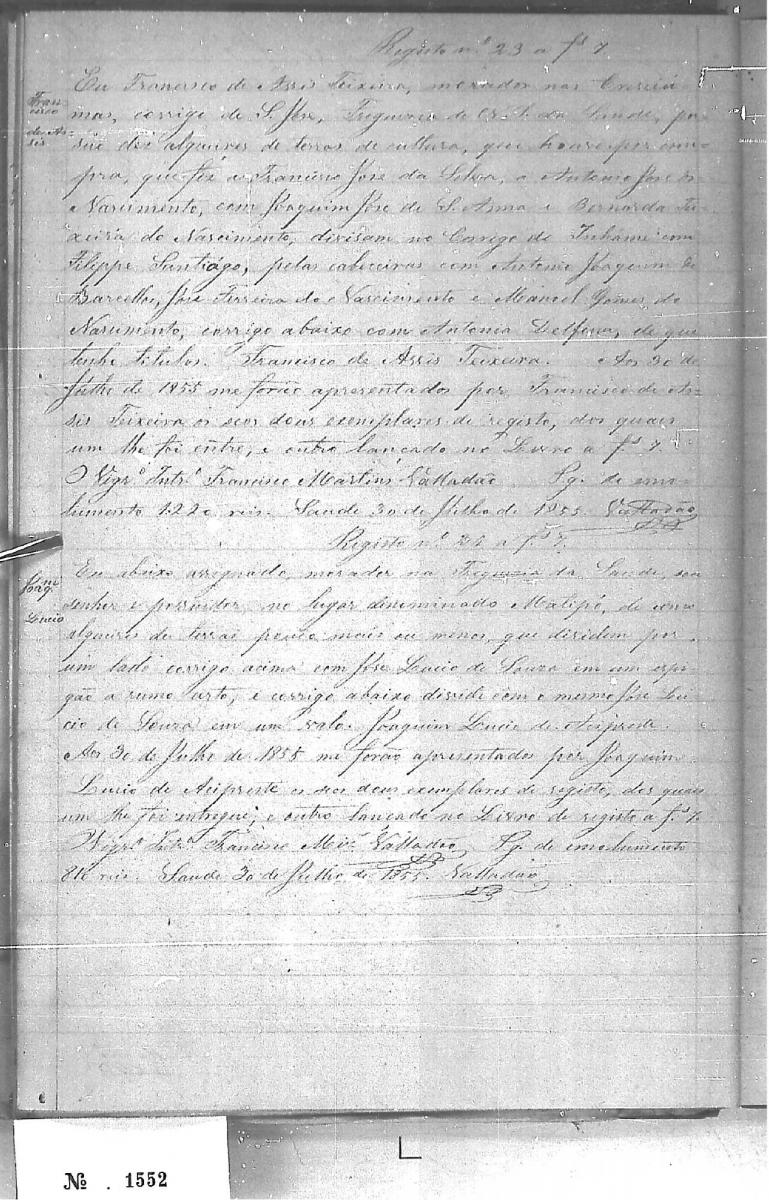 Registo n.º 23 a fs 7
Fran-
cisco
de As-
sis
Eu Francisco de Assis Teixeira, morador nas
mas, corrigo de S. José, Freguesia de N. S. da Saude, pos-
suo dez alqueires de terras de cultura, que houve por com-
pra, que fiz a Francisco José da Silva, a Antonio José do
Nascimento, com Joaquim José de S. Anna e Bernarda Tei-
xeira do Nascimento, divisam no Corrigo de Inhame com
Filippe Santiágo, pelas cabeceiras com Antonio Joaquim de
Barcellos, José Ferreira do Nascimento e Manoel Gomes do
Nascimento, corrigo abaixo com Antonia Delfona, de que
tenho titulos. Francisco de Assis Teixeira. Aos 30 de
Julho de 1855 me forão apresentados por Francisco de As-
sis Teixeira os seos dous exemplares de registo, dos quais
um lhe foi entre, e outro lançado no Livro a fs 7.
O Vigr.º Intr.º Francisco Martins Valladão Pg. de emo-
lumento 1220 reis. Saude 30 de Julho de 1855. Valladão
Registo n.º 24 a fs 7.
Joaq.m
Lucio
Eu abaixo assignado, morador na Freguesia da Saude, sou
senhor e possuidor, no lugar denominado Matipó, de
alqueires de terras pouco mais ou menos, que dividem por
um lado corrigo acima com José Lucio de Souza em um espi-
gão a rumo certo, e corrigo abaixo divide com o mesmo José Lu-
cio de Souza em um valo. Joaquim Lucio de Acipreste
Aos 30 de Julho de 1855 me forão apresentados por Joaquim
Lucio de Acipreste os seos dous exemplares de registo, dos quais
um lhe foi entregue, e outro lançado no Livro de registo a fs 7.
O Vigr.º Intr.º Francisco Mis. Valladão Pg. de emolumento
816 reis. Saude 30 de Julho de 1855. Valladão
No. 1552